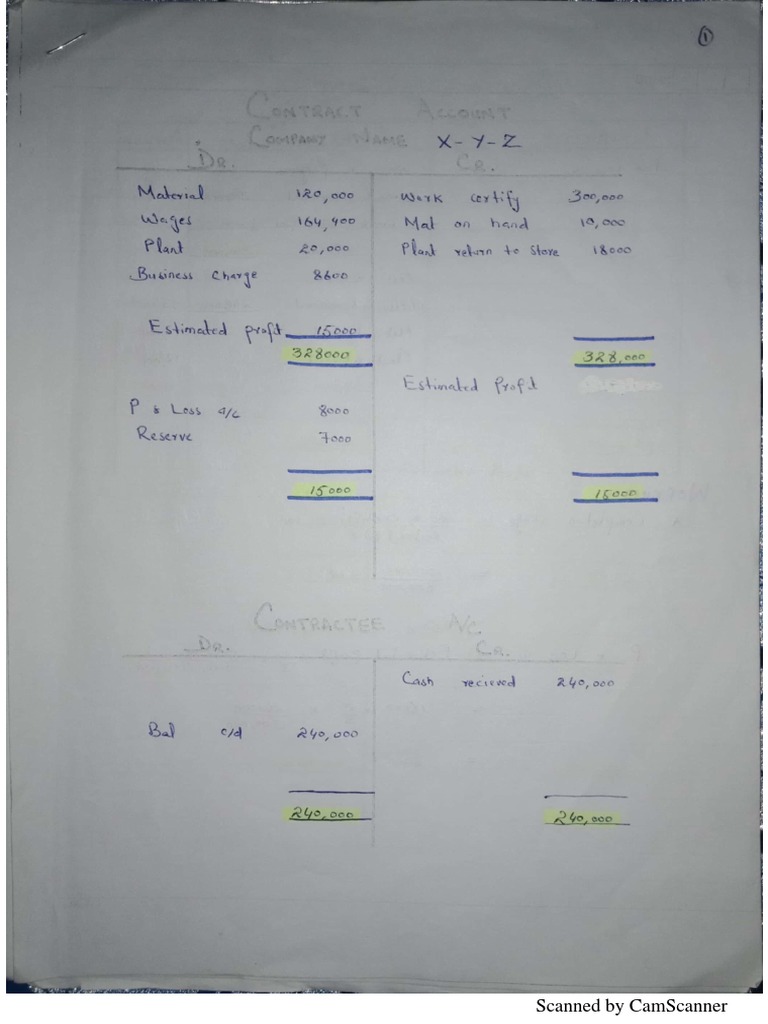 1
CONTRACT ACCOUNT
COMPANY NAME X-Y-Z
DR. CR.
Material 120,000 Work certify 300,000
Wages 164,400 Mat on hand 10,000
Plant 20,000 Plant return to store 18000
Business charge 8600
Estimated profit 15000
328000 328,000
Estimated Profit
P & Loss a/c 8000
Reserve 7000
15000 15000
CONTRACTEE A/C
DR. CR.
Cash recieved 240,000
Bal c/d 240,000
240,000 240,000
Scanned by CamScanner